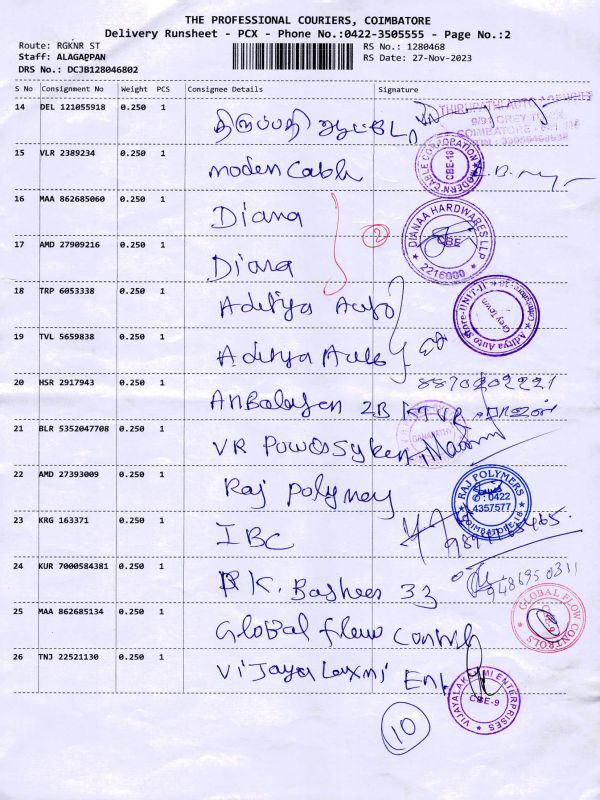 THE PROFESSIONAL COURIERS, COIMBATORE
Delivery Runsheet - PCX - Phone No.:0422-3505555 - Page No.:2
Route: RGKNR ST
RS No.: 1280468
Staff: ALAGAPPAN
RS Date: 27-Nov-2023
DRS No.: DCJB128046802
S No Consignment No Weight PCS Consignee Details Signature
14 DEL 121055918 0.250 1 திருப்பதி
THIRUPATHI AUTO AGENCIES
9/91 GREY TOWN
COIMBATORE
15 VLR 2389234 0.250 1 Moden Cable
MODERN CABLE CORPORATION
CBE-18
16 MAA 862685060 0.250 1 Diana
DIANAA HARDWARES LLP
CBE
2216000
2
17 AMD 27909216 0.250 1 Diana
18 TRP 6053338 0.250 1 Aditya Auto
Aditya Auto Store-UNIT-II
Grey Town
19 TVL 5659838 0.250 1 Aditya Auto
8870202221
20 HSR 2917943 0.250 1 Anbalagan 2B KTVR
21 BLR 5352047708 0.250 1 VR Power
22 AMD 27393009 0.250 1 Raj Polymer
RAJ POLYMERS
✆: 0422
4357577
23 KRG 163371 0.250 1 IBC
24 KUR 7000584381 0.250 1 R K. Basheer 33
9486950311
25 MAA 862685134 0.250 1 Global Flow Control
GLOBAL FLOW CONTROLS
26 TNJ 22521130 0.250 1 Vijaya Laxmi Ent
VIJAYALAKSHMI ENTERPRISES
CBE-9
10